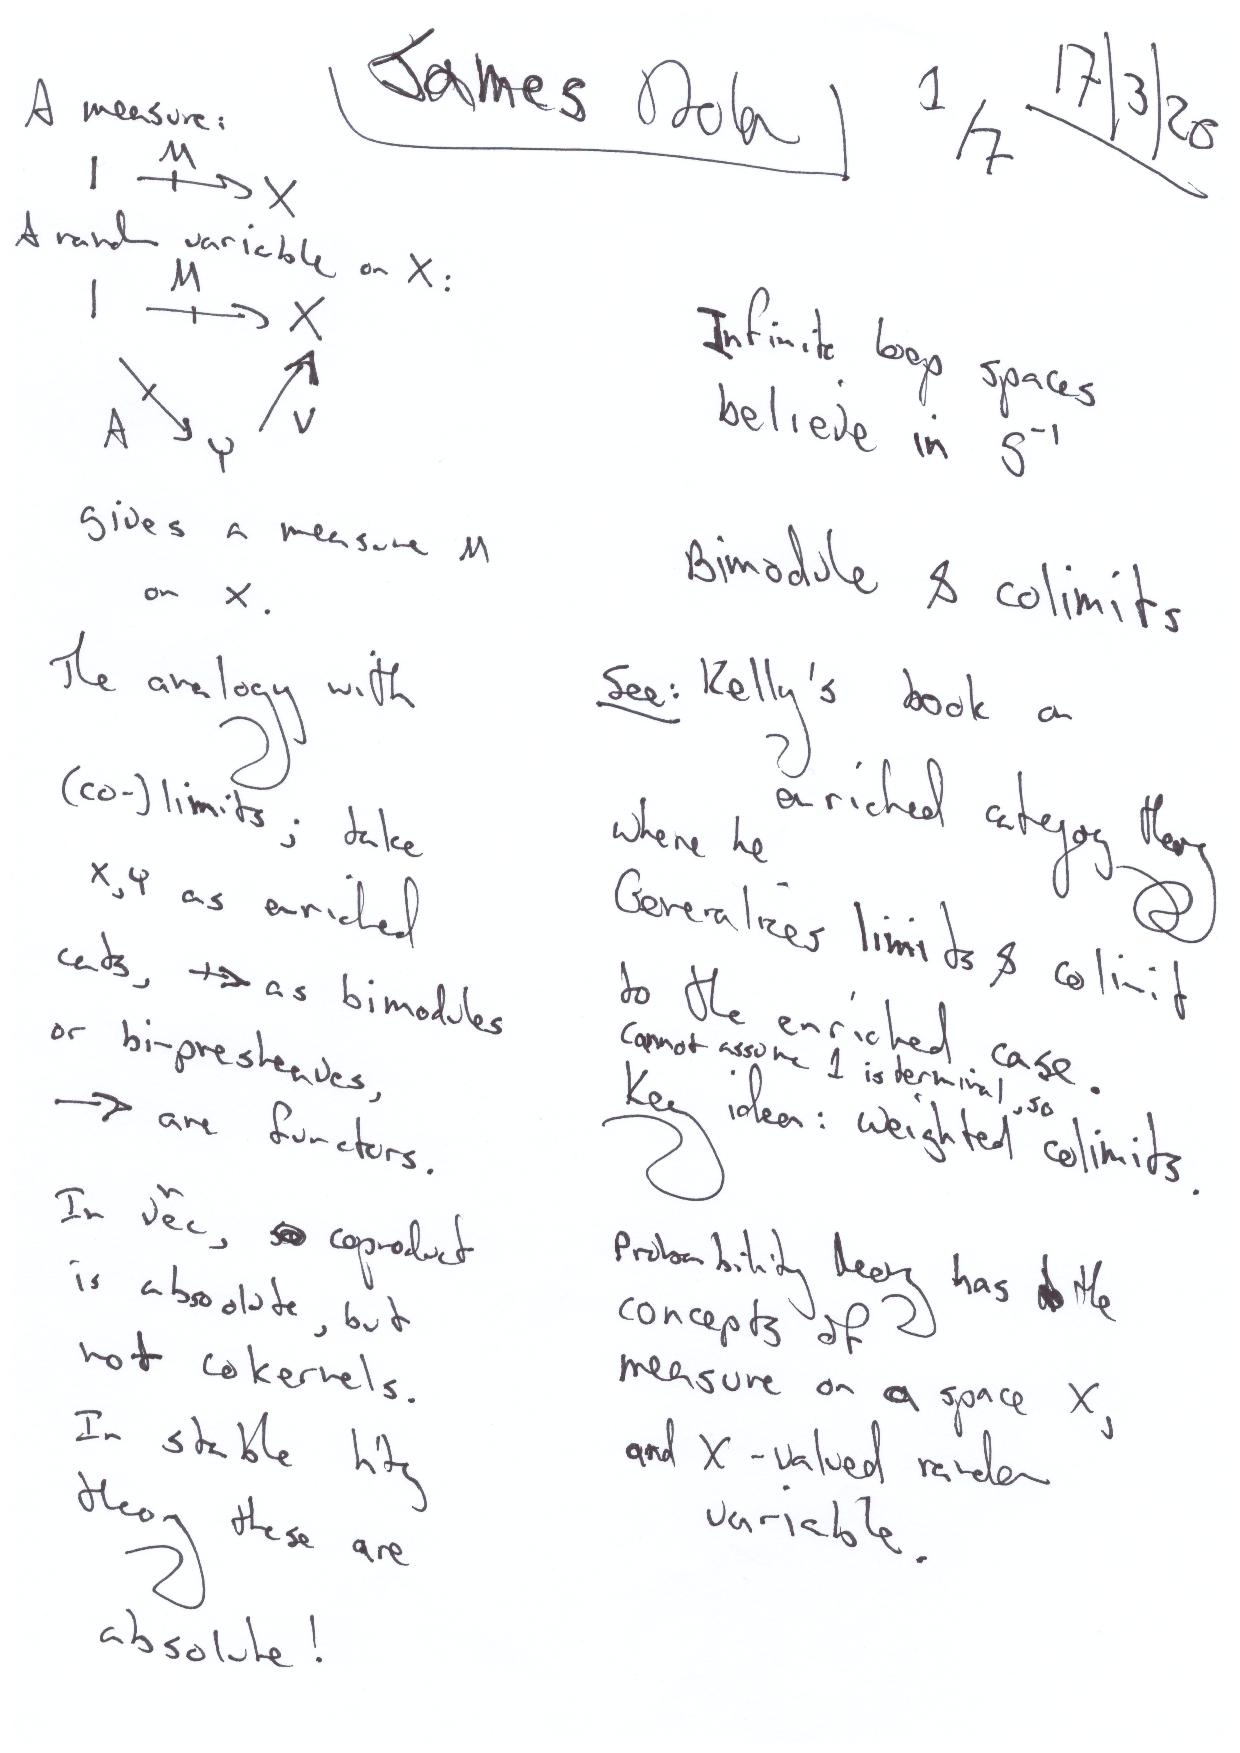 James Dolan
1/7
17/3/20
A measure:
1 M X
A random variable on X:
1 M X
A Y V
gives a measure M
on X.
The analogy with
(co-)limits; take
X, Y as enriched
cats, ⇸ as bimodules
or bi-presheaves,
→ are functors.
In Vec, coproduct
is absolute, but
not cokernels.
In stable h'tpy
theory these are
absolute!
Infinite loop spaces
believe in S⁻¹
Bimodule & colimits
See: Kelly's book on
enriched category theory
where he
Generalizes limits & colimit
to the enriched case.
Cannot assume 1 is terminal, so
Key idea: weighted colimits.
Probability theory has the
concepts of
measure on a space X,
and X-valued random
variable.